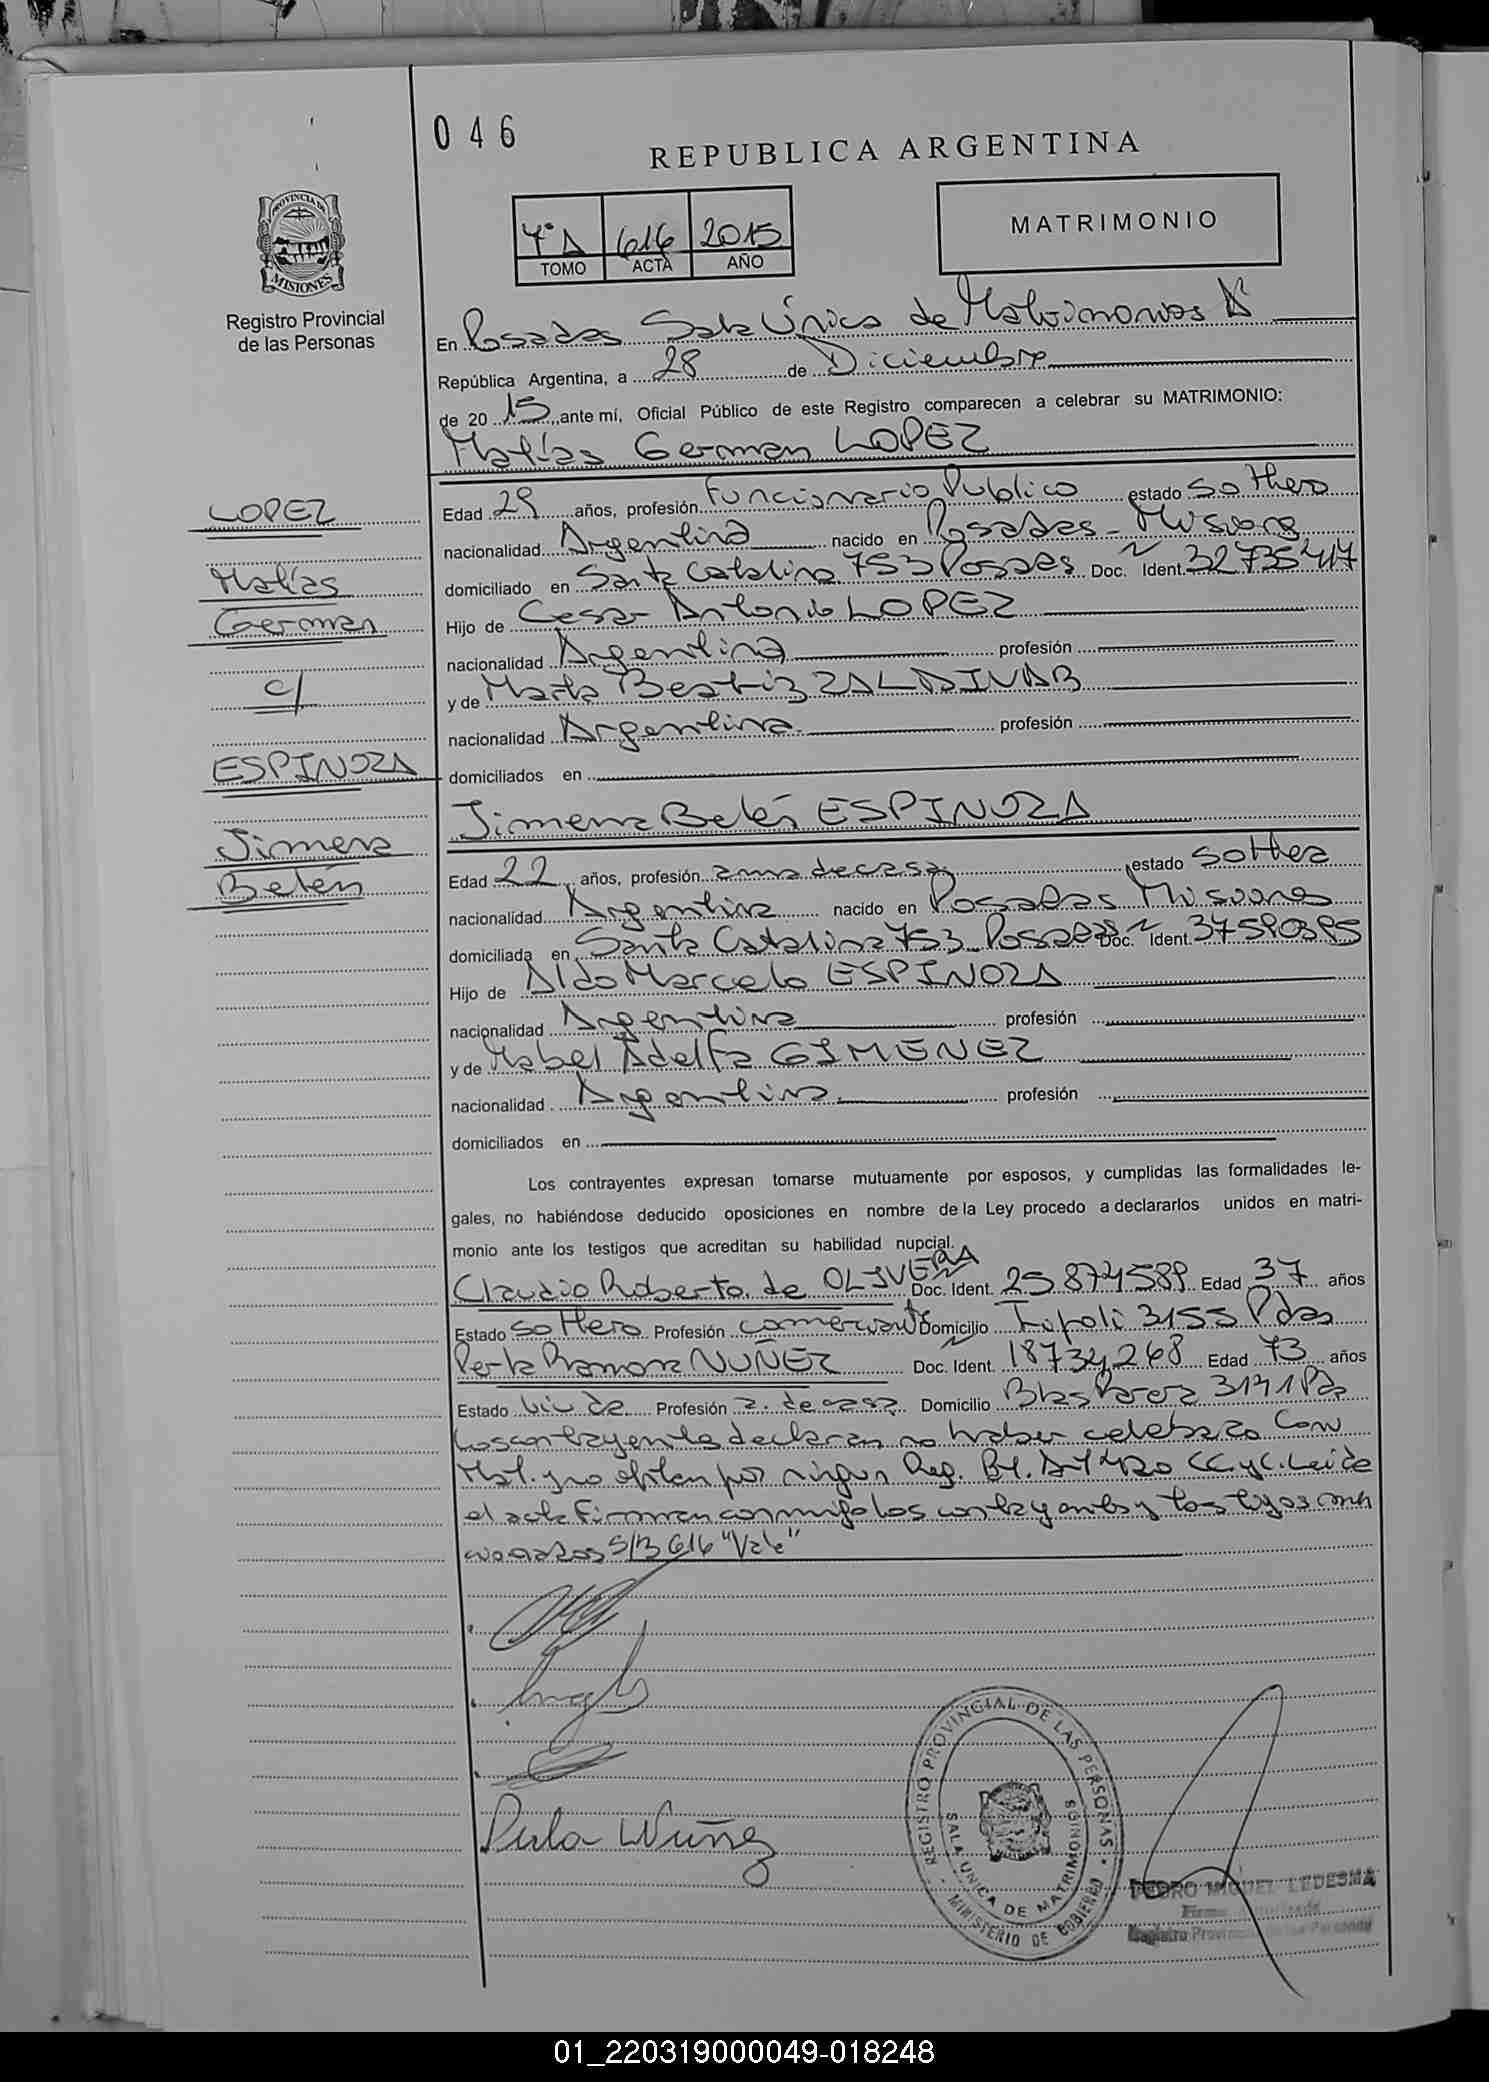 046
REPUBLICA ARGENTINA
4° A 616 2015
TOMO ACTA AÑO
MATRIMONIO
PROVINCIA DE
MISIONES
Registro Provincial
de las Personas
En Posadas Sala Única de Matrimonios A
República Argentina, a 28 de Diciembre
de 2015 ante mí, Oficial Público de este Registro comparecen a celebrar su MATRIMONIO:
Matías German LOPEZ
LOPEZ
Matías
German
c/
ESPINOZA
Jimena
Belén
Edad 29 años, profesión Funcionario Publico estado soltero
nacionalidad Argentina nacido en Posadas - Misiones
domiciliado en Santa Catalina 753 Posadas Doc. Ident. 32735417
Hijo de Cesar Antonio LOPEZ
nacionalidad Argentina profesión
y de Marta Beatriz ZALDIVAR
nacionalidad Argentina. profesión
domiciliados en
Jimena Belén ESPINOZA
Edad 22 años, profesión ama de casa estado soltera
nacionalidad Argentina nacido en Posadas Misiones
domiciliada en Santa Catalina 753 Posadas Doc. Ident.
Hijo de Aldo Marcelo ESPINOZA
nacionalidad Argentina profesión
y de Mabel Adelfa GIMENEZ
nacionalidad Argentina. profesión
domiciliados en
Los contrayentes expresan tomarse mutuamente por esposos, y cumplidas las formalidades le-
gales, no habiéndose deducido oposiciones en nombre de la Ley procedo a declararlos unidos en matri-
monio ante los testigos que acreditan su habilidad nupcial.
Claudio Roberto de OLIVERA Doc. Ident. 25.874589 Edad 37 años
Estado soltero Profesión comerciante Domicilio 3155 Pdas
Perla Ramona NUÑEZ Doc. Ident. 18734268 Edad 73 años
Estado viuda Profesión a. de casa Domicilio Blas Parera 3141 Pdas
Los contrayentes declaran no haber celebrado Conv
Mat. y no optan por ningun Reg. Pat. Art 420 CC.yC. Leida
el acta Firman conmigo los contrayentes y los tgos com
S/B 616 "Vale"
Perla Nuñez
REGISTRO PROVINCIAL DE LAS PERSONAS
SALA UNICA DE MATRIMONIOS
MINISTERIO DE GOBIERNO
PEDRO MIGUEL LEDESMA
Firma Autorizada
Registro Provincial de las Personas
01_220319000049-018248